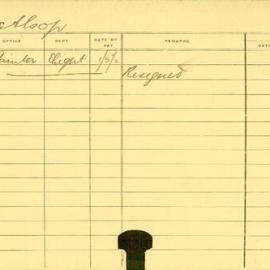 Alsop
OFFICE DEPT. DATE OF PAY REMARKS DATE
Painter
Resigned